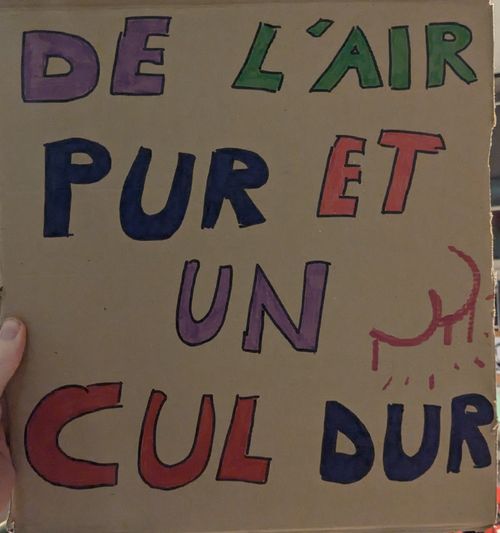 DE L'AIR
PUR ET
UN
CUL DUR